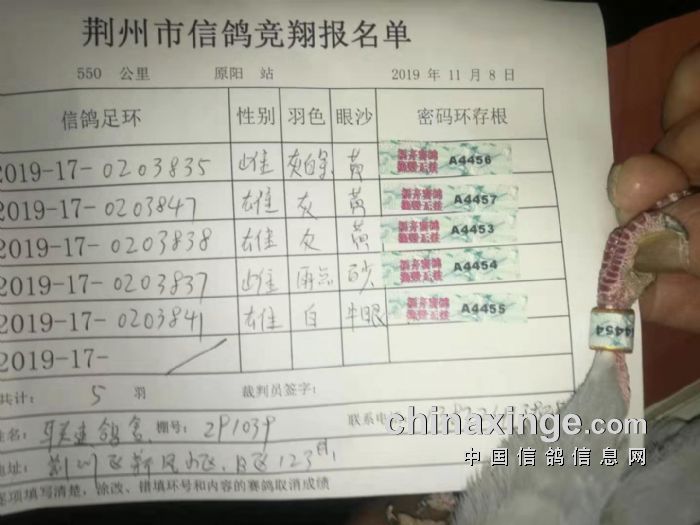 荆州市信鸽竞翔报名单
550 公里 原阳 站 2019 年 11 月 8 日
信鸽足环 性别 羽色 眼沙 密码环存根
2019-17-0203835 雌 灰白条 黄 A4456
2019-17-0203847 雄 灰 黄 A4457
2019-17-0203838 雄 灰 黄 A4453
2019-17-0203837 雌 雨点 砂 A4454
2019-17-0203841 雄 白 牛眼 A4455
2019-17-
共计: 5 羽 裁判员签字:
姓名: 鸽舍 棚号: 291039 联系电
地址: 荆州区新风 B区123
填写清楚，涂改、错填环号和内容的赛鸽取消成绩
A4454
chinaxinge.com
中国信鸽信息网